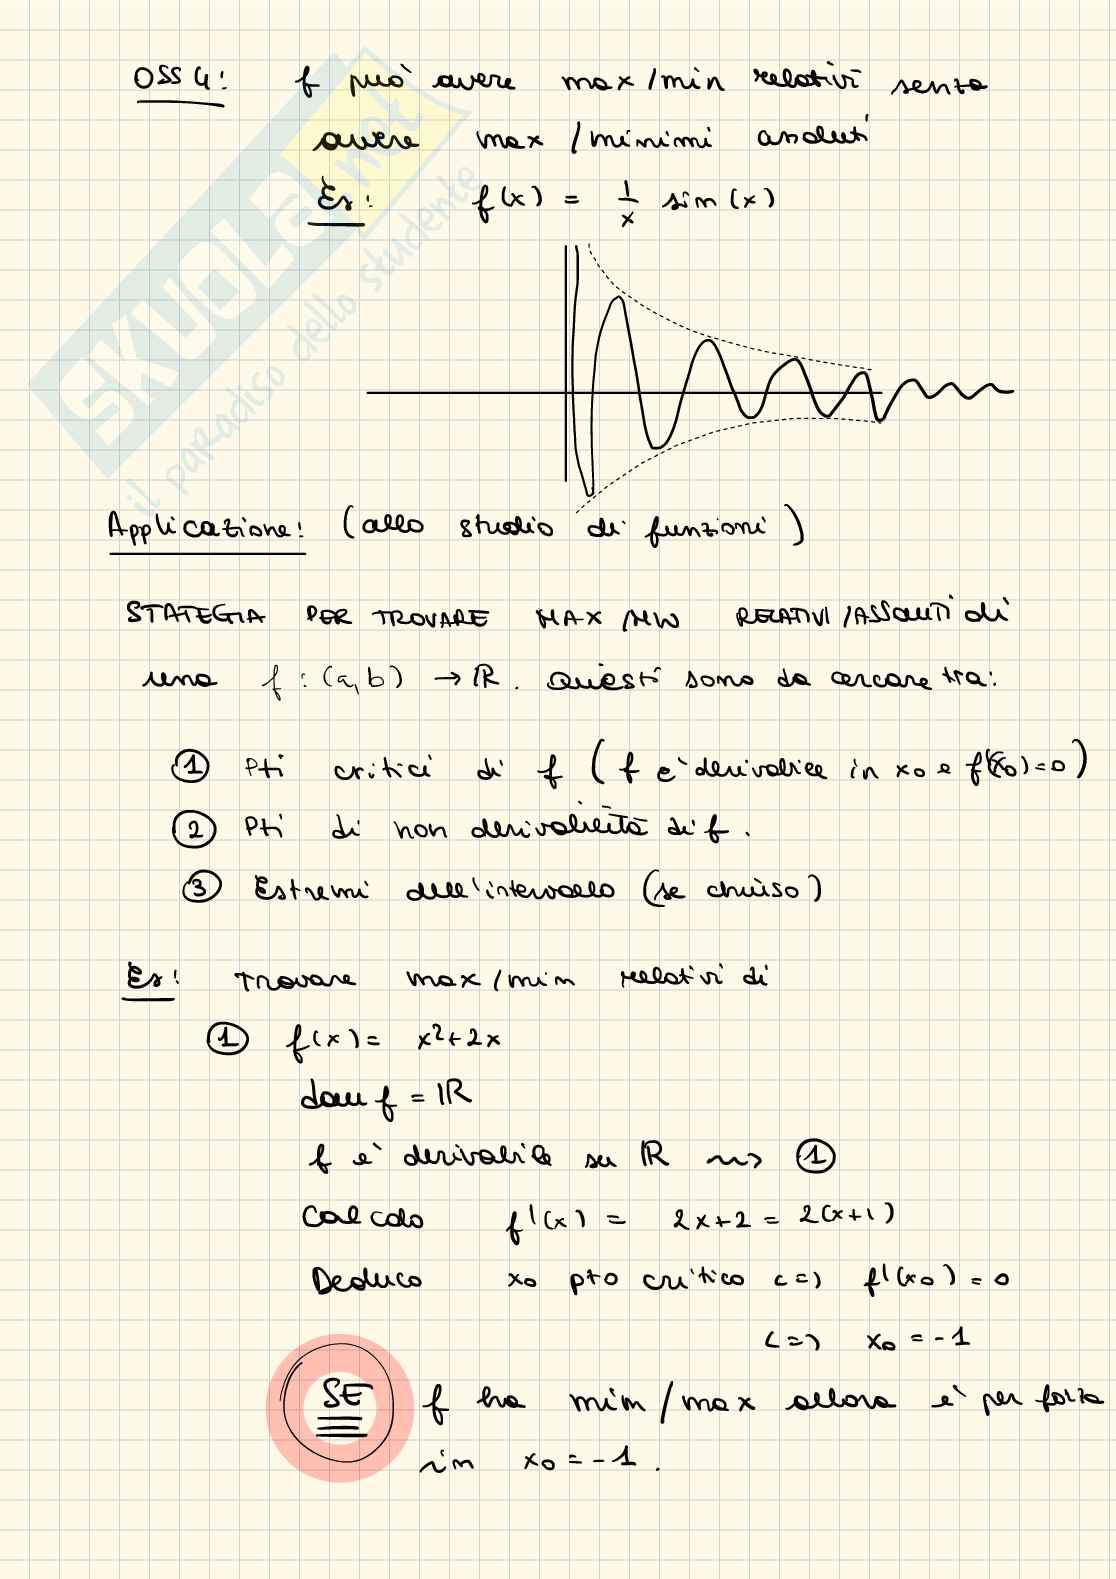 OSS 4: f può avere max/min relativi senza
avere max/minimi assoluti
Es: f(x) = 1/x sin(x)
SKUOLA.net
il paradiso dello studente
Applicazione: (allo studio di funzioni)
STATEGIA PER TROVARE MAX/MIN RELATIVI/ASSOLUTI di
una f: (a,b) → ℝ. Questi sono da cercare tra:
① Pti critici di f (f è derivabile in x₀ e f'(x₀)=0)
② Pti di non derivabilità di f.
③ Estremi dell'intervallo (se chiuso)
Es: Trovare max/min relativi di
① f(x) = x²+2x
dom f = ℝ
f è derivabile su ℝ ⇝ ①
Calcolo f'(x) = 2x+2 = 2(x+1)
Deduco x₀ pto critico <=> f'(x₀) = 0
<=> x₀ = -1
SE f ha min/max allora è per forza
in x₀ = -1.